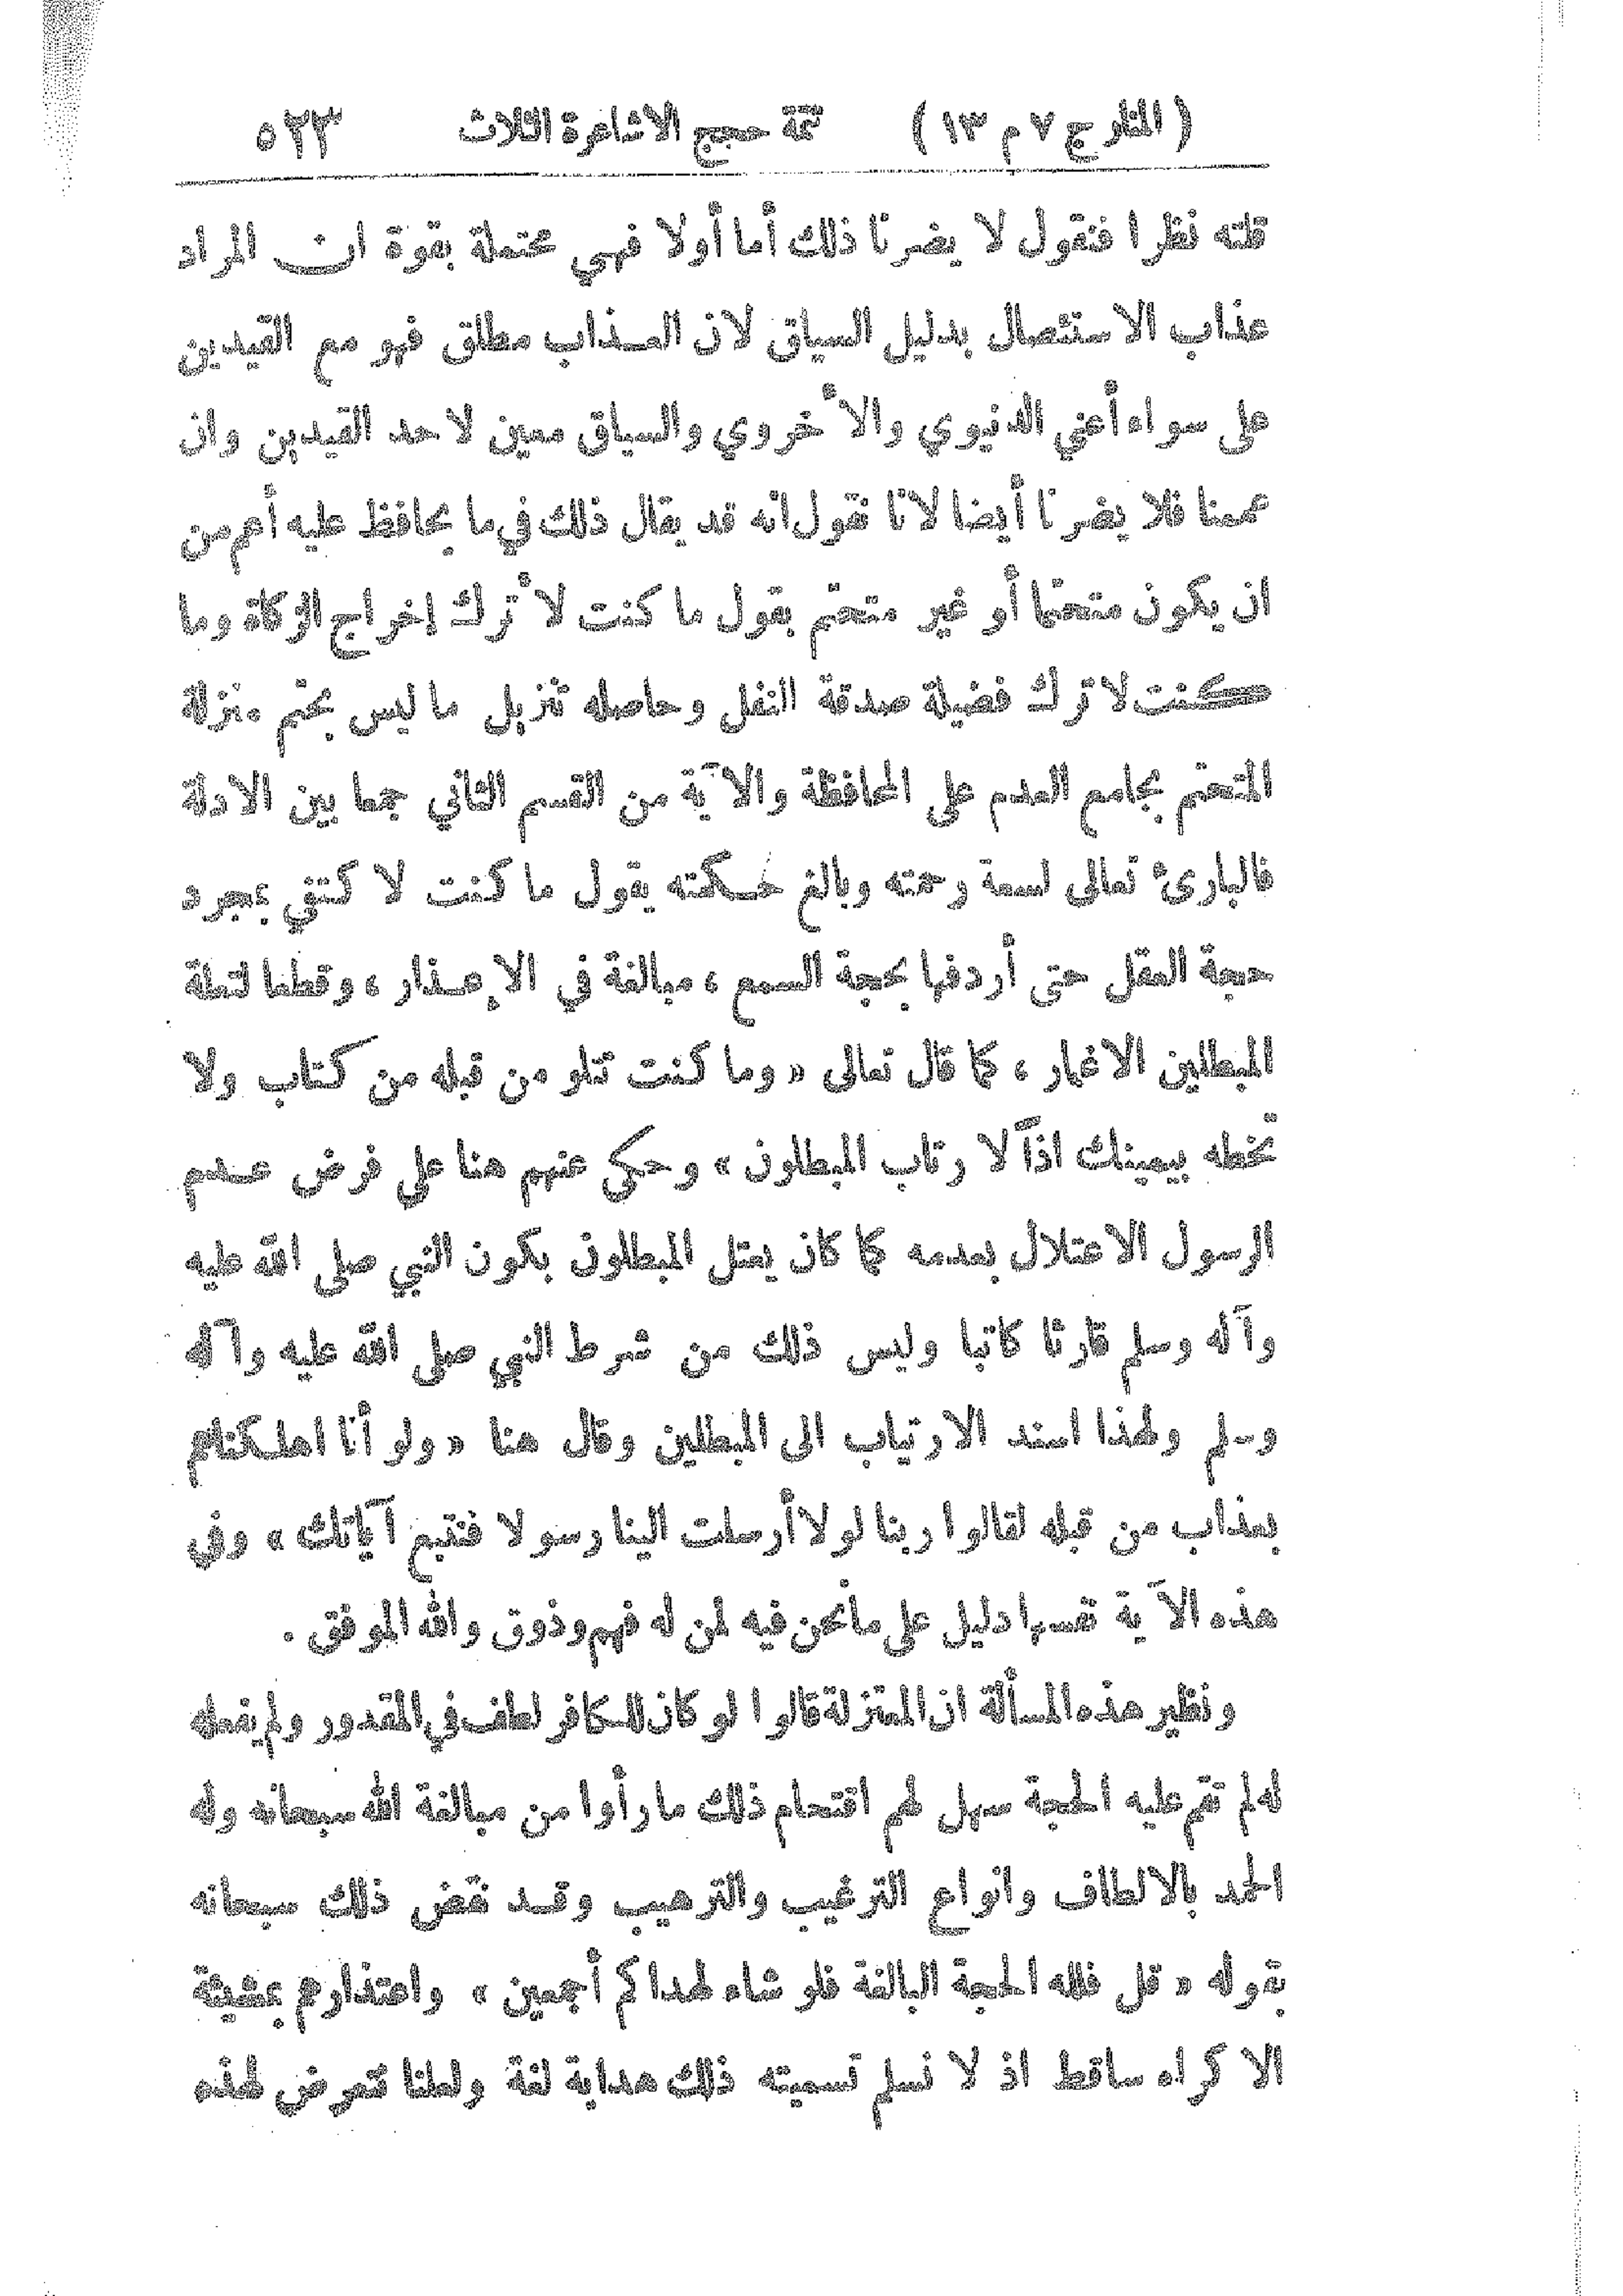 (المنار ج ٧ م ١٣) تتمة حجج الاشاعرة الثلاث ٥٢٣
قلته نظرا فنقول لا يضرنا ذلك أما أولا فهي محتملة بقوة ان المراد
عذاب الاستئصال بدليل السياق لان العذاب مطلق فهو مع القيدين
على سواء أعني الدنيوي والأخروي والسياق معين لاحد القيدين وان
عممنا فلا يضرنا أيضا لانا نقول انه قد يقال ذلك في ما يحافظ عليه أعم من
ان يكون متحتما أو غير متحتم بقول ما كنت لأترك إخراج الزكاة وما
كنت لا ترك فضيلة صدقة النفل وحاصله تنزيل ما ليس بحتم منزلة
المتحتم بجامع العدم على المحافظة والآية من القسم الثاني جمعا بين الادلة
فالبارئ تعالى لسعة رحمته وبالغ حكمته يقول ما كنت لا كتفي بمجرد
حجة العقل حتى أردفها بحجة السمع ، مبالغة في الإعذار ، وقطعا لتعلة
المبطلين الاغمار ، كما قال تعالى « وما كنت تتلو من قبله من كتاب ولا
تخطه بيمينك اذاً لا رتاب المبطلون » وحكى عنهم هنا على فرض عدم
الرسول الاعتلال بعدمه كما كان يعتل المبطلون بكون النبي صلى الله عليه
وآله وسلم قارئا كاتبا وليس ذلك من شرط النبي صلى الله عليه وآله
وسلم ولهذا اسند الارتياب الى المبطلين وقال هنا « ولو أنا اهلكناهم
بعذاب من قبله لقالوا ربنا لولا أرسلت الينا رسولا فنتبع آياتك » وفي
هذه الآية نفسها دليل على ما نحن فيه لمن له فهم وذوق والله الموفق .
ونظير هذه المسألة ان المعتزلة قالوا لو كان للكافر لطف في المقدور ولم يفعله
له لم تقم عليه الحجة سهل لهم اقتحام ذلك ما رأوا من مبالغة الله سبحانه وله
الحمد بالالطاف وانواع الترغيب والترهيب وقد نقض ذلك سبحانه
بقوله « قل فلله الحجة البالغة فلو شاء لهداكم أجمعين » واعتذارهم بمشيئة
الاكراه ساقط اذ لا نسلم تسميته ذلك هداية لغة ولعلنا نتعرض لهذه